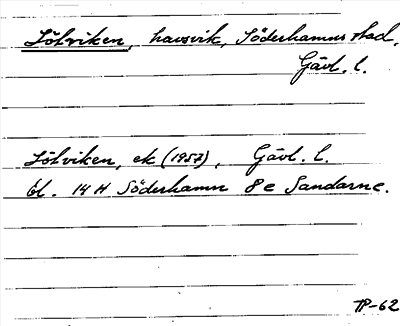 Sötviken, havsvik, Söderhamns stad,
Gävl. l.
Sötviken, ek (1957), Gävl. l.
bl. 14 H Söderhamn 8 e Sandarne.
TP-62